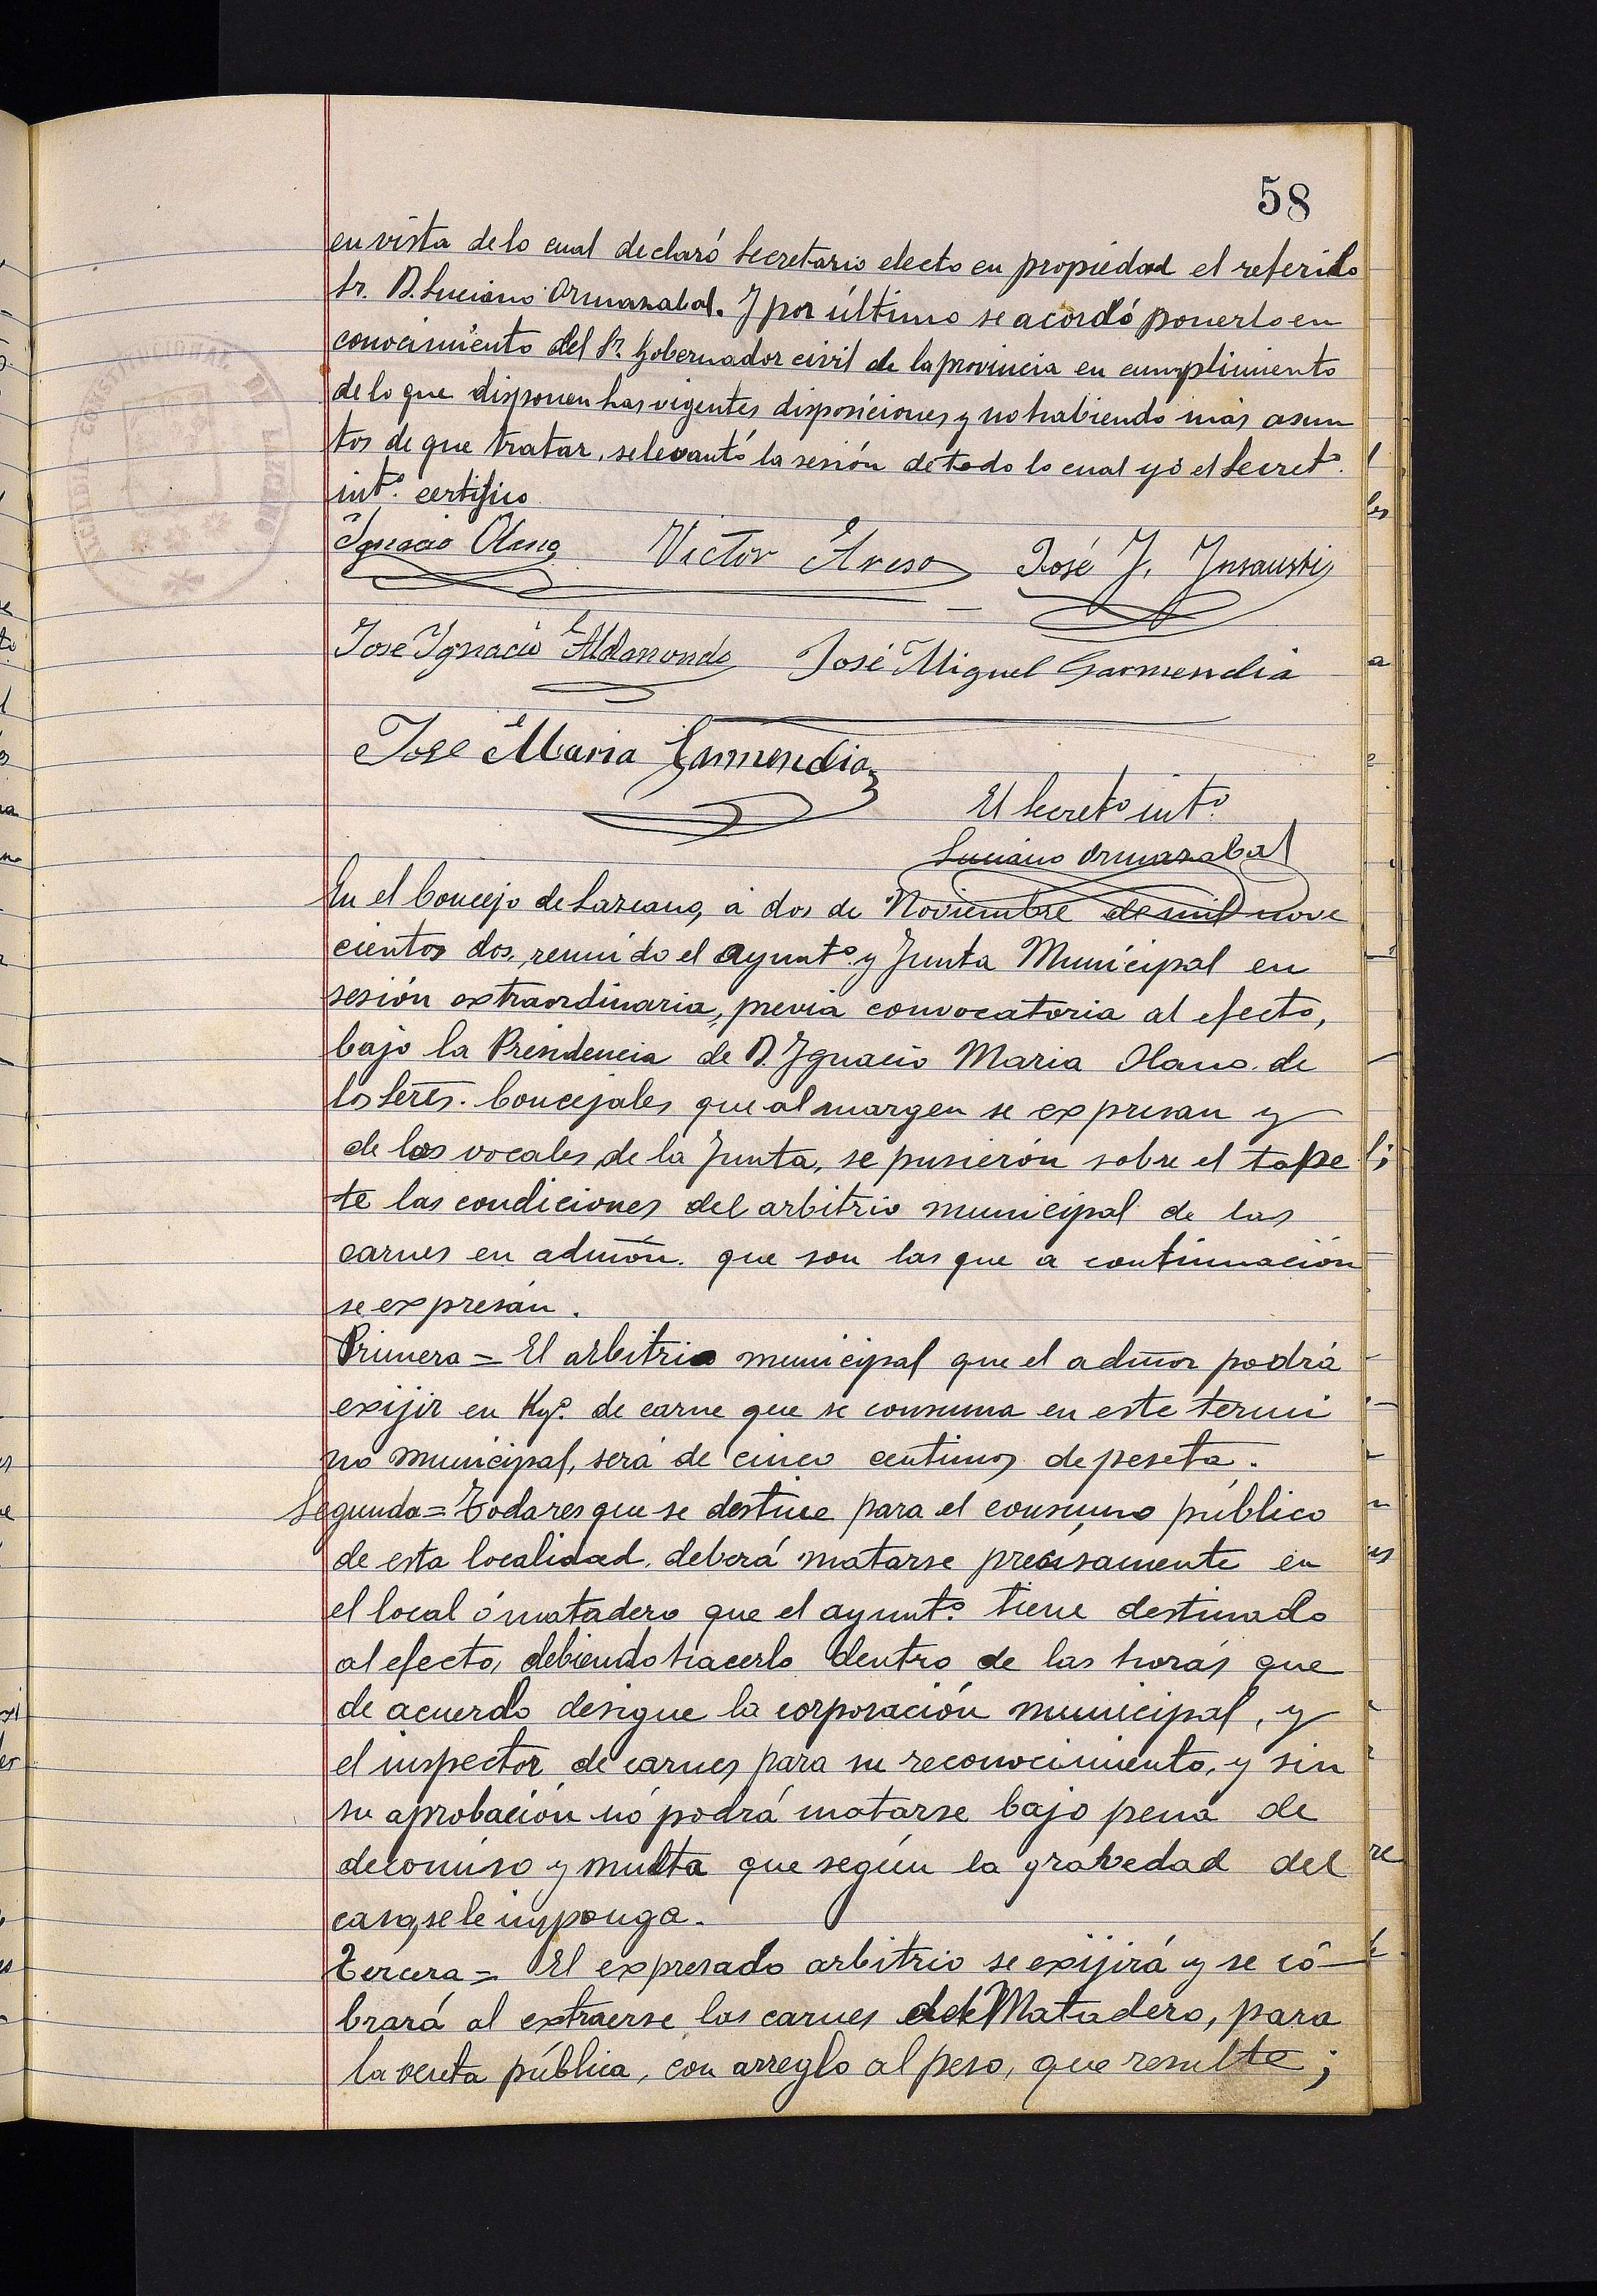 58
en vista de lo cual declaró Secretario electo en propiedad el referido
Sr. D. Luciano Ormazabal. Y por último se acordó ponerlo en
conocimiento del Sr. Gobernador civil de la provincia en cumplimiento
de lo que disponen las vigentes disposiciones y no habiendo más asun
tos de que tratar, se levantó la sesión de todo lo cual yó el Secretº.
intº. certifico
Ignacio Olano Victor Areso José J. Insausti
José Ignacio Aldanondo José Miguel Garmendia
José Maria Garmendia
El Secretº intº.
Luciano Ormazabal
En el Concejo de Lazcano, á dos de Noviembre de mil nove
cientos dos, reunido el Ayuntº. y Junta Municipal en
sesión extraordinaria, previa convocatoria al efecto,
bajo la Presidencia de D. Ignacio Maria Olano. de
los Señres. Concejales que al margen se expresan y
de los vocales de la Junta, se pusierón sobre el tape
te las condiciones del arbitrio municipal de las
carnes en admón. que son las que á continuación
se expresan.
Primera = El arbitrio municipal que el admor podrá
exijir en Kgº. de carne que se consuma en este termi
no municipal, será de cinco centimos de peseta.
Segunda = Toda res que se destine para el consumo público
de esta localidad, deberá matarse precisamente en
el local ó matadero que el ayuntº. tiene destinado
al efecto, debiendo hacerlo dentro de las horas que
de acuerdo designe la corporación municipal, y
el inspector de carnes para su reconocimiento, y sin
su aprobación nó podrá matarse bajo pena de
decomiso y multa que según la gravedad del
caso, se le imponga.
Tercera = El expresado arbitrio se exijirá y se có
brará al extraerse las carnes del Matadero, para
la venta pública, con arreglo al peso, que resulte;